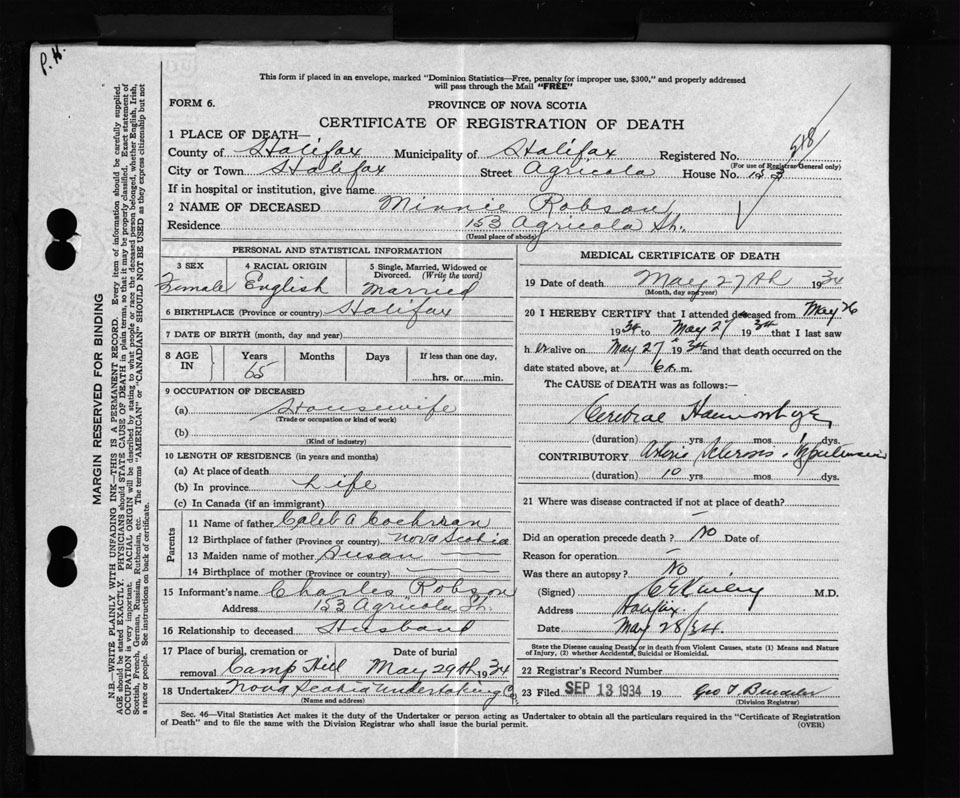 P.H.
This form if placed in an envelope, marked "Dominion Statistics—Free, penalty for improper use, $300," and properly addressed
will pass through the Mail "FREE"
FORM 6.
PROVINCE OF NOVA SCOTIA
CERTIFICATE OF REGISTRATION OF DEATH
518
1 PLACE OF DEATH—
County of Halifax Municipality of Halifax Registered No.
(For use of Registrar General only)
City or Town Halifax Street Agricola House No. 153
If in hospital or institution, give name
2 NAME OF DECEASED Minnie Robson
Residence 153 Agricola St.
(Usual place of abode)
PERSONAL AND STATISTICAL INFORMATION
3 SEX Female
4 RACIAL ORIGIN English
5 Single, Married, Widowed or Divorced. (Write the word) Married
6 BIRTHPLACE (Province or country) Halifax
7 DATE OF BIRTH (month, day and year)
8 AGE IN Years 65 Months Days If less than one day, hrs. or min.
9 OCCUPATION OF DECEASED
(a) Housewife
(Trade or occupation or kind of work)
(b)
(Kind of industry)
10 LENGTH OF RESIDENCE (in years and months)
(a) At place of death
(b) In province Life
(c) In Canada (if an immigrant)
Parents
11 Name of father Caleb A Cochran
12 Birthplace of father (Province or country) Nova Scotia
13 Maiden name of mother Susan
14 Birthplace of mother (Province or country)
15 Informant's name Charles Robson
Address 153 Agricola St.
16 Relationship to deceased Husband
17 Place of burial, cremation or removal Camp Hill Date of burial May 29th 1934
18 Undertaker Nova Scotia Undertaking Co.
(Name and address)
MEDICAL CERTIFICATE OF DEATH
19 Date of death May 27th 1934
(Month, day and year)
20 I HEREBY CERTIFY that I attended deceased from May 26
1934 to May 27 1934 that I last saw
her alive on May 27 1934 and that death occurred on the
date stated above, at 6 m.
The CAUSE of DEATH was as follows:—
Cerebral Haemorrhage
(duration) yrs. mos. 1 dys.
CONTRIBUTORY Arterio Sclerosis & Hypertension
(duration) 10 yrs. mos. dys.
21 Where was disease contracted if not at place of death?
Did an operation precede death? No Date of
Reason for operation
Was there an autopsy? No
(Signed) M.D.
Address Halifax.
Date May 28/34.
State the Disease causing Death, or in death from Violent Causes, state (1) Means and Nature
of Injury, (2) whether Accidental, Suicidal or Homicidal.
22 Registrar's Record Number
23 Filed SEP 13 1934 19 Geo T
(Division Registrar)
Sec. 46—Vital Statistics Act makes it the duty of the Undertaker or person acting as Undertaker to obtain all the particulars required in the "Certificate of Registration
of Death" and to file the same with the Division Registrar who shall issue the burial permit.
(OVER)
MARGIN RESERVED FOR BINDING
N.B.—WRITE PLAINLY WITH UNFADING INK—THIS IS A PERMANENT RECORD. Every item of information should be carefully supplied.
AGE should be stated EXACTLY. PHYSICIANS should STATE CAUSE OF DEATH in plain terms, so that it may be properly classified. Exact statement of
OCCUPATION is very important. RACIAL ORIGIN will be described by stating to what people or race the deceased person belonged, whether English, Irish,
Scottish, French, German, Russian, Ruthenian, etc. The terms "AMERICAN" or "CANADIAN" SHOULD NOT BE USED as they express citizenship but not
a race or people. See instructions on back of certificate.